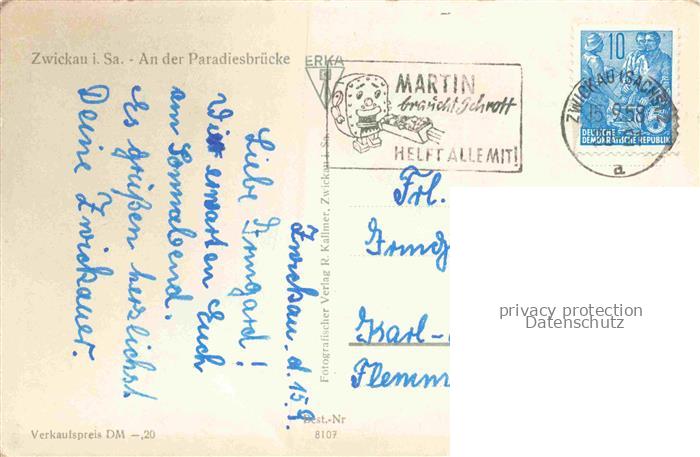 Zwickau i. Sa. - An der Paradiesbrücke
ERKA
MARTIN
braucht Schrott
HELFT ALLE MIT!
ZWICKAU (SACHS)
15. 9. 58
a
10
DEUTSCHE
DEMOKRATISCHE REPUBLIK
Zwickau, d. 15.9.
Liebe Irmgard!
Wir erwarten Euch
am Sonnabend.
Es grüßen herzlichst
Deine Zwickauer.
Fotografischer Verlag R. Kallmer, Zwickau i. Sa.
Frl.
Irmg
Karl-
Flemm
privacy protection
Datenschutz
Verkaufspreis DM —,20
Best.-Nr
8107